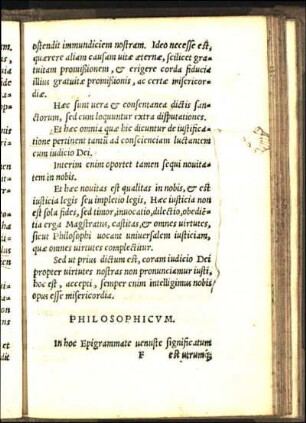 ostendit immundiciem nostram. Ideo necesse est,
quærere aliam causam uitæ æternæ, scilicet gra-
tuitam promissionem, & erigere corda fiducia
illius gratuitæ promissionis, ac certæ misericor-
diæ.
Hæc sunt uera & consentanea dictis san-
ctorum, sed cum loquuntur extra disputationes.
Et hæc omnia quæ hic dicuntur de iustificatio-
ne pertinent tantũ ad conscienciam luctantem
cum iudicio Dei.
Interim enim oportet tamen sequi nouita-
tem in nobis.
Et hæc nouitas est qualitas in nobis, & est
iusticia legis seu impletio legis, Hæc iusticia non
est sola fides, sed timor, inuocatio, dilectio, obediẽ-
tia erga Magstratus, castitas, & omnes uirtutes,
sicut Philosophi uocant uniuersalem iusticiam,
quæ omnes uirtutes complectitur.
Sed ut prius dictum est, coram iudicio Dei
propter uirtutes nostras non pronunciamur iusti,
hoc est, accepti, semper enim intelligimus nobis
opus esse misericordia.
PHILOSOPHICVM.
In hoc Epigrammate uenuste significatum
F est utrumq;